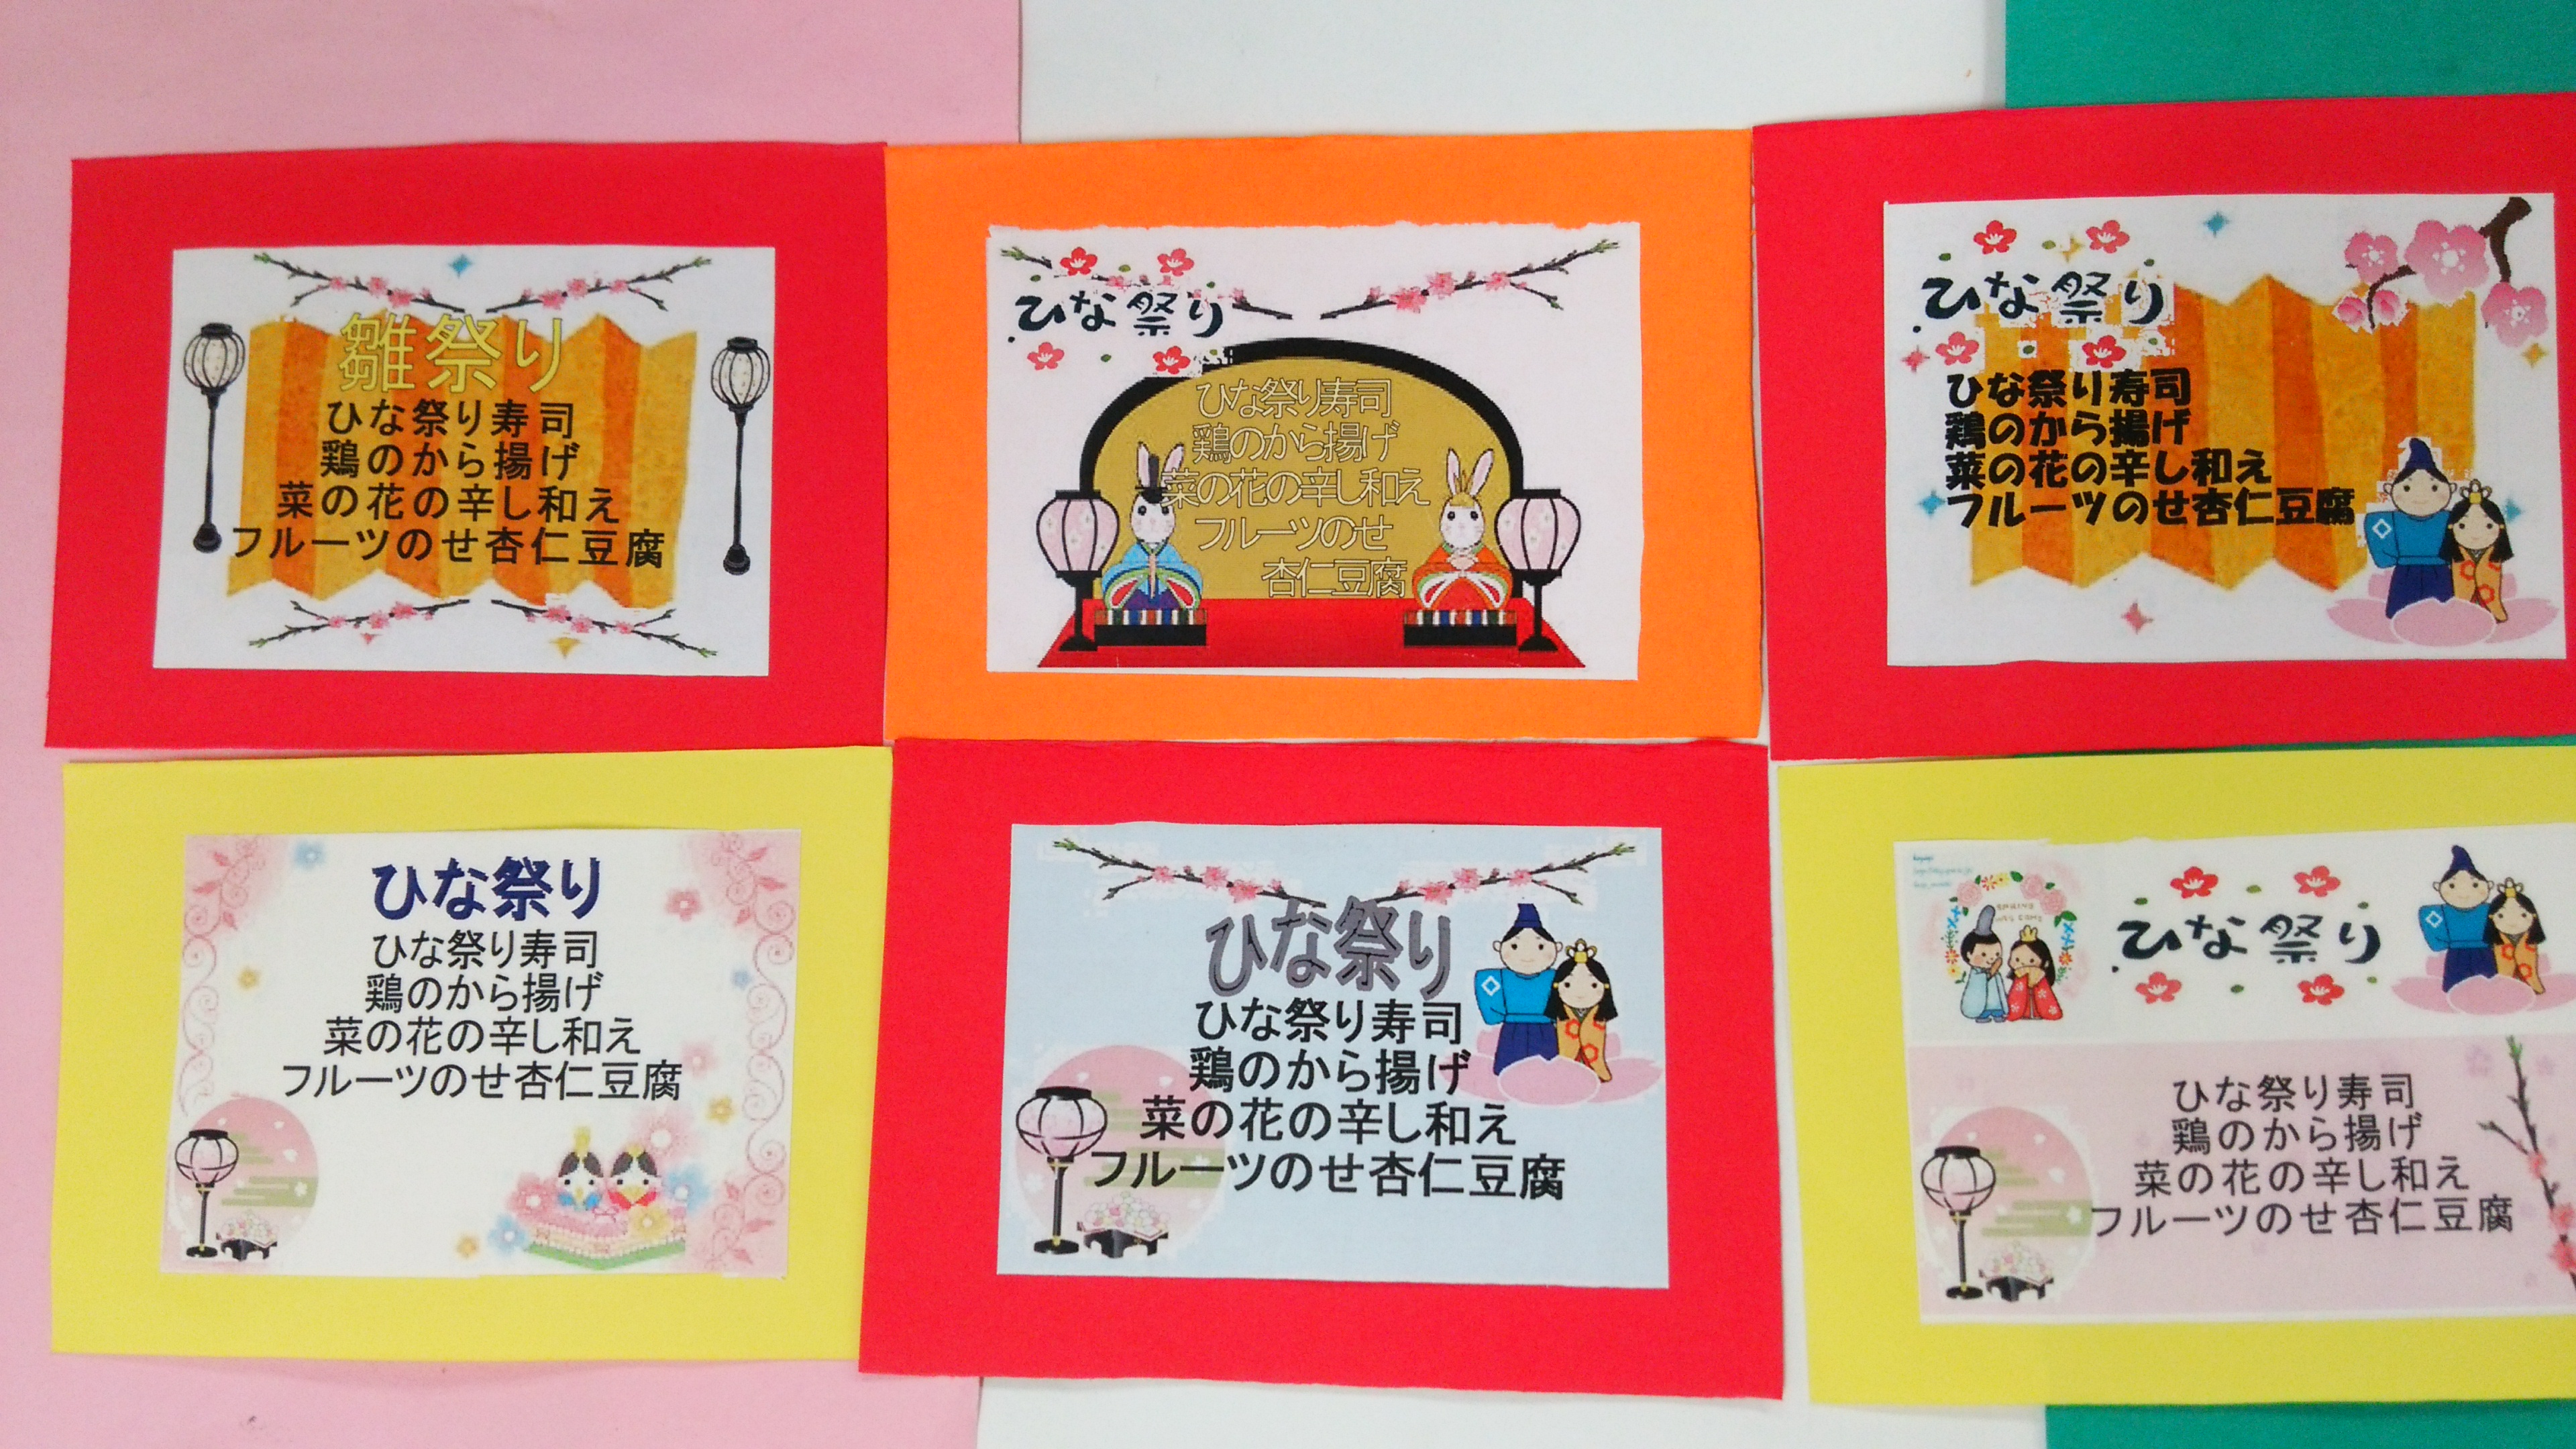 雛祭り
ひな祭り寿司
鶏のから揚げ
菜の花の辛し和え
フルーツのせ杏仁豆腐
ひな祭り
ひな祭り寿司
鶏のから揚げ
菜の花の辛し和え
フルーツのせ
杏仁豆腐
ひな祭り
ひな祭り寿司
鶏のから揚げ
菜の花の辛し和え
フルーツのせ杏仁豆腐
ひな祭り
ひな祭り寿司
鶏のから揚げ
菜の花の辛し和え
フルーツのせ杏仁豆腐
ひな祭り
ひな祭り寿司
鶏のから揚げ
菜の花の辛し和え
フルーツのせ杏仁豆腐
SPRING
HAS COME
ひな祭り
ひな祭り寿司
鶏のから揚げ
菜の花の辛し和え
フルーツのせ杏仁豆腐